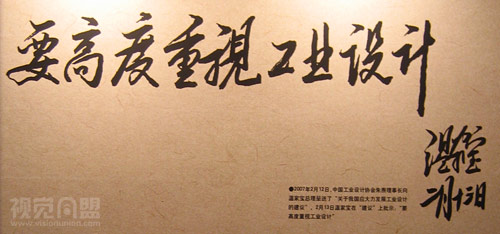 要高度重視工业设计
温家宝
二月十三日
●2007年2月12日，中国工业设计协会朱焘理事长向
温家宝总理呈送了“关于我国应大力发展工业设计
的建议”，2月13日温家宝在“建议”上批示，“要
高度重视工业设计”
视觉同盟
www.visionunion.com